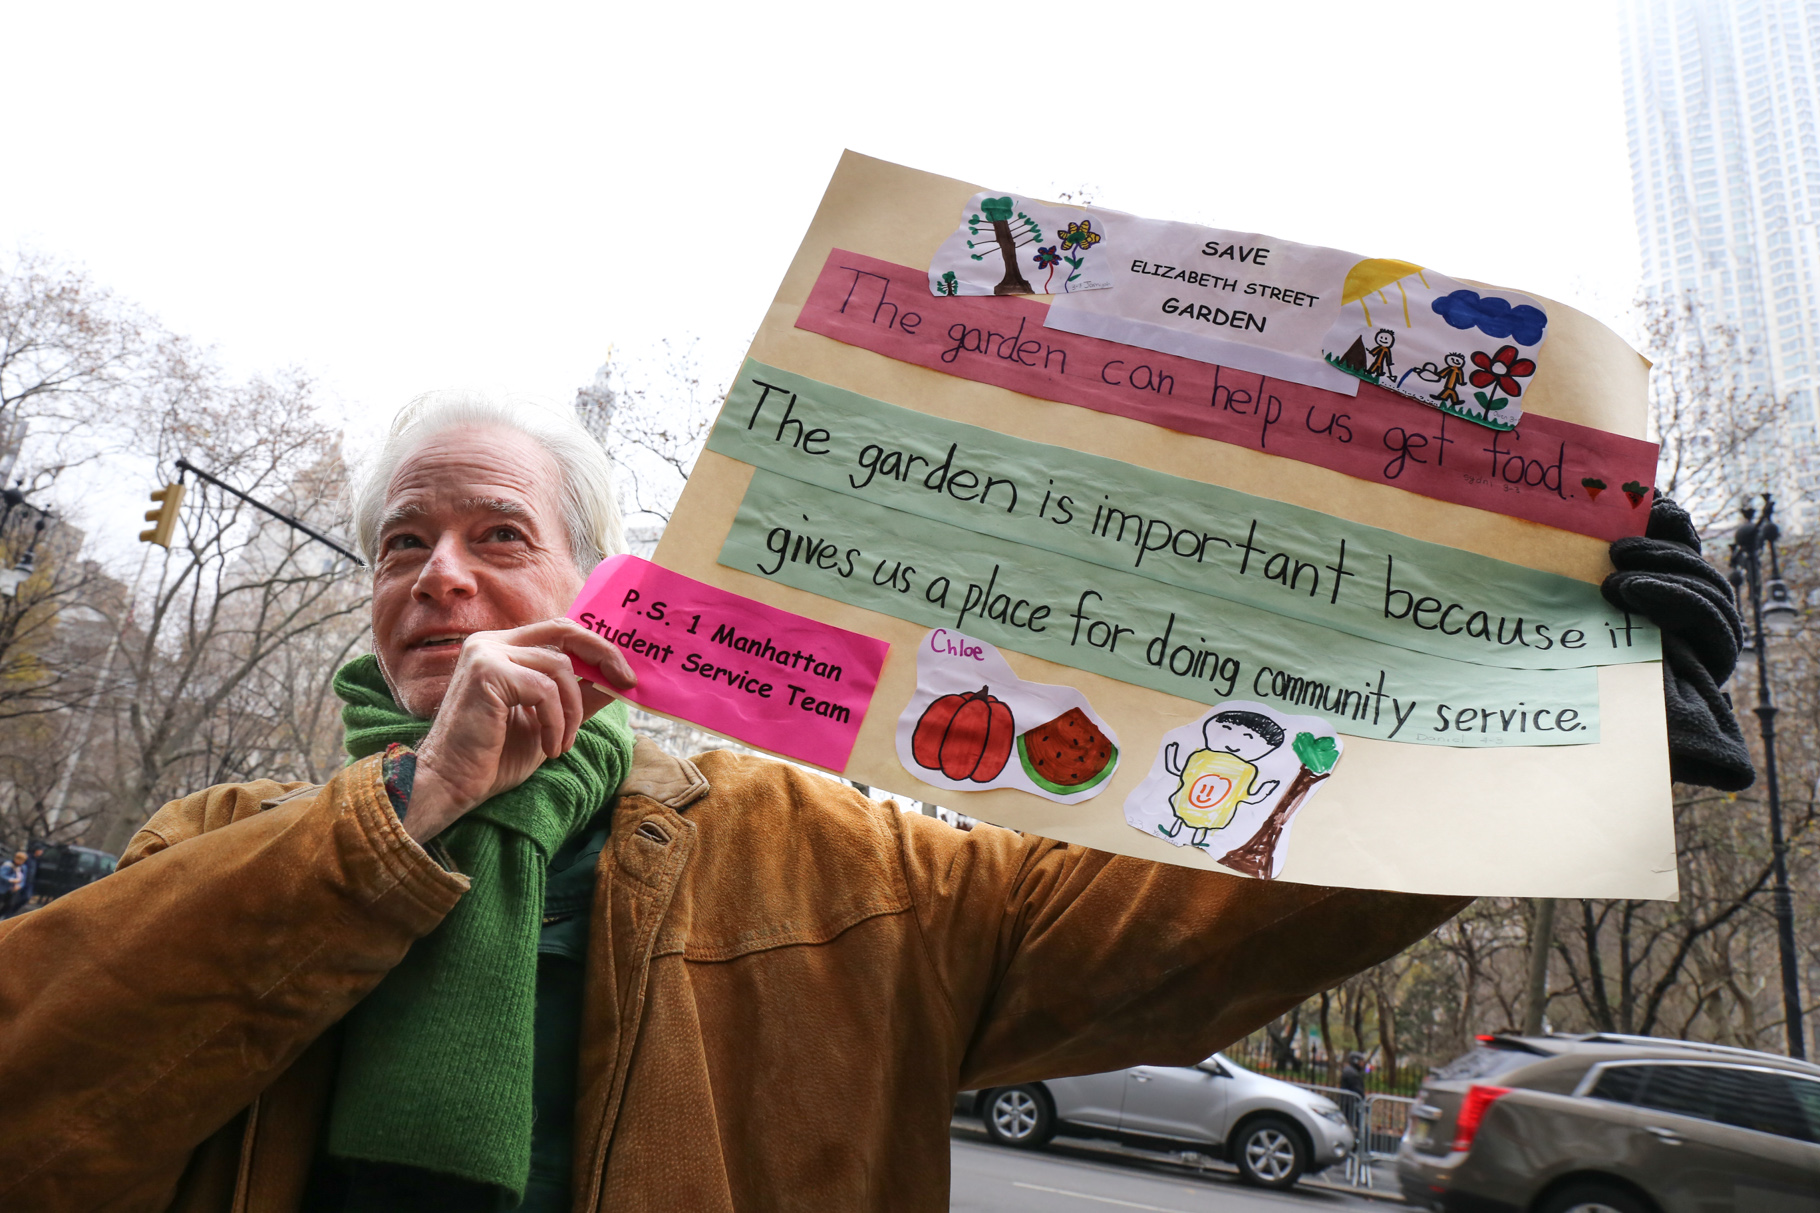 SAVE
ELIZABETH STREET
GARDEN
The garden can help us get food.
Sydni 3-3
The garden is important because it
gives us a place for doing community service.
Daniel 4-3
P.S. 1 Manhattan
Student Service Team
Chloe